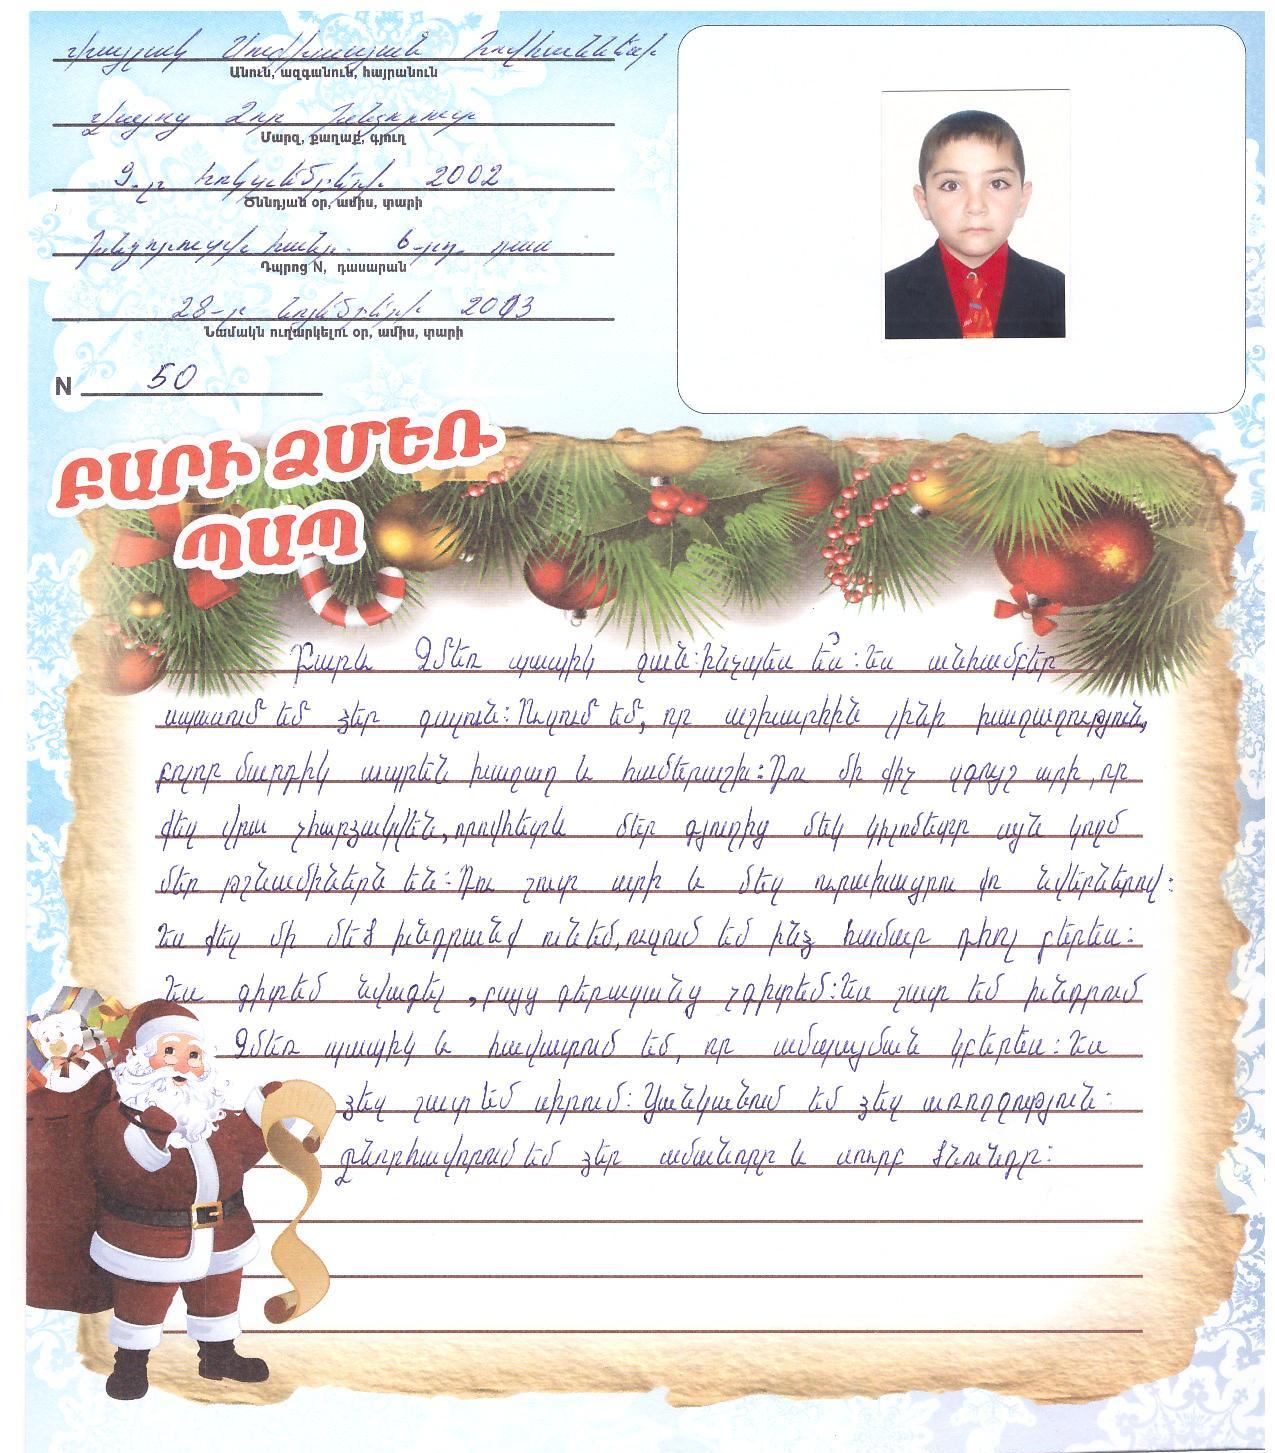 Անուն, ազգանուն, հայրանուն
Վայոց Ձոր Խնձորուտ
Մարզ, քաղաք, գյուղ
9-ը հոկտեմբերի 2002
Ծննդյան օր, ամիս, տարի
6-րդ դաս
Դպրոց N, դասարան
28-ը նոյեմբերի 2013
Նամակն ուղարկելու օր, ամիս, տարի
N 50
ԲԱՐԻ ՁՄԵՌ
ՊԱՊ
Բարև Ձմեռ պապիկ ջան: Ինչպես ե՞ս: Ես անհամբեր
սպասում եմ ձեր գալուն: Ուզում եմ, որ աշխարհին լինի խաղաղություն,
բոլոր մարդիկ ապրեն խաղաղ և համերաշխ: Դու մի քիչ զգույշ արի, որ
քեզ վրա չհարձակվեն, որովհետև մեր գյուղից մեկ կիլոմետր այն կողմ
մեր թշնամիներն են: Դու շուտ արի և մեզ ուրախացրու քո նվերներով:
Ես քեզ մի մեծ խնդրանք ունեմ, ուզում եմ ինձ համար դհոլ բերես:
Ես գիտեմ նվագել, բայց գերազանց չգիտեմ: Ես շատ եմ խնդրում
Ձմեռ պապիկ և հավատում եմ, որ անպայման կբերես: Ես
ձեզ շատ եմ սիրում: Ցանկանում եմ ձեզ առողջություն:
Շնորհավորում եմ ձեր ամանորը և սուրբ ծնունդը: